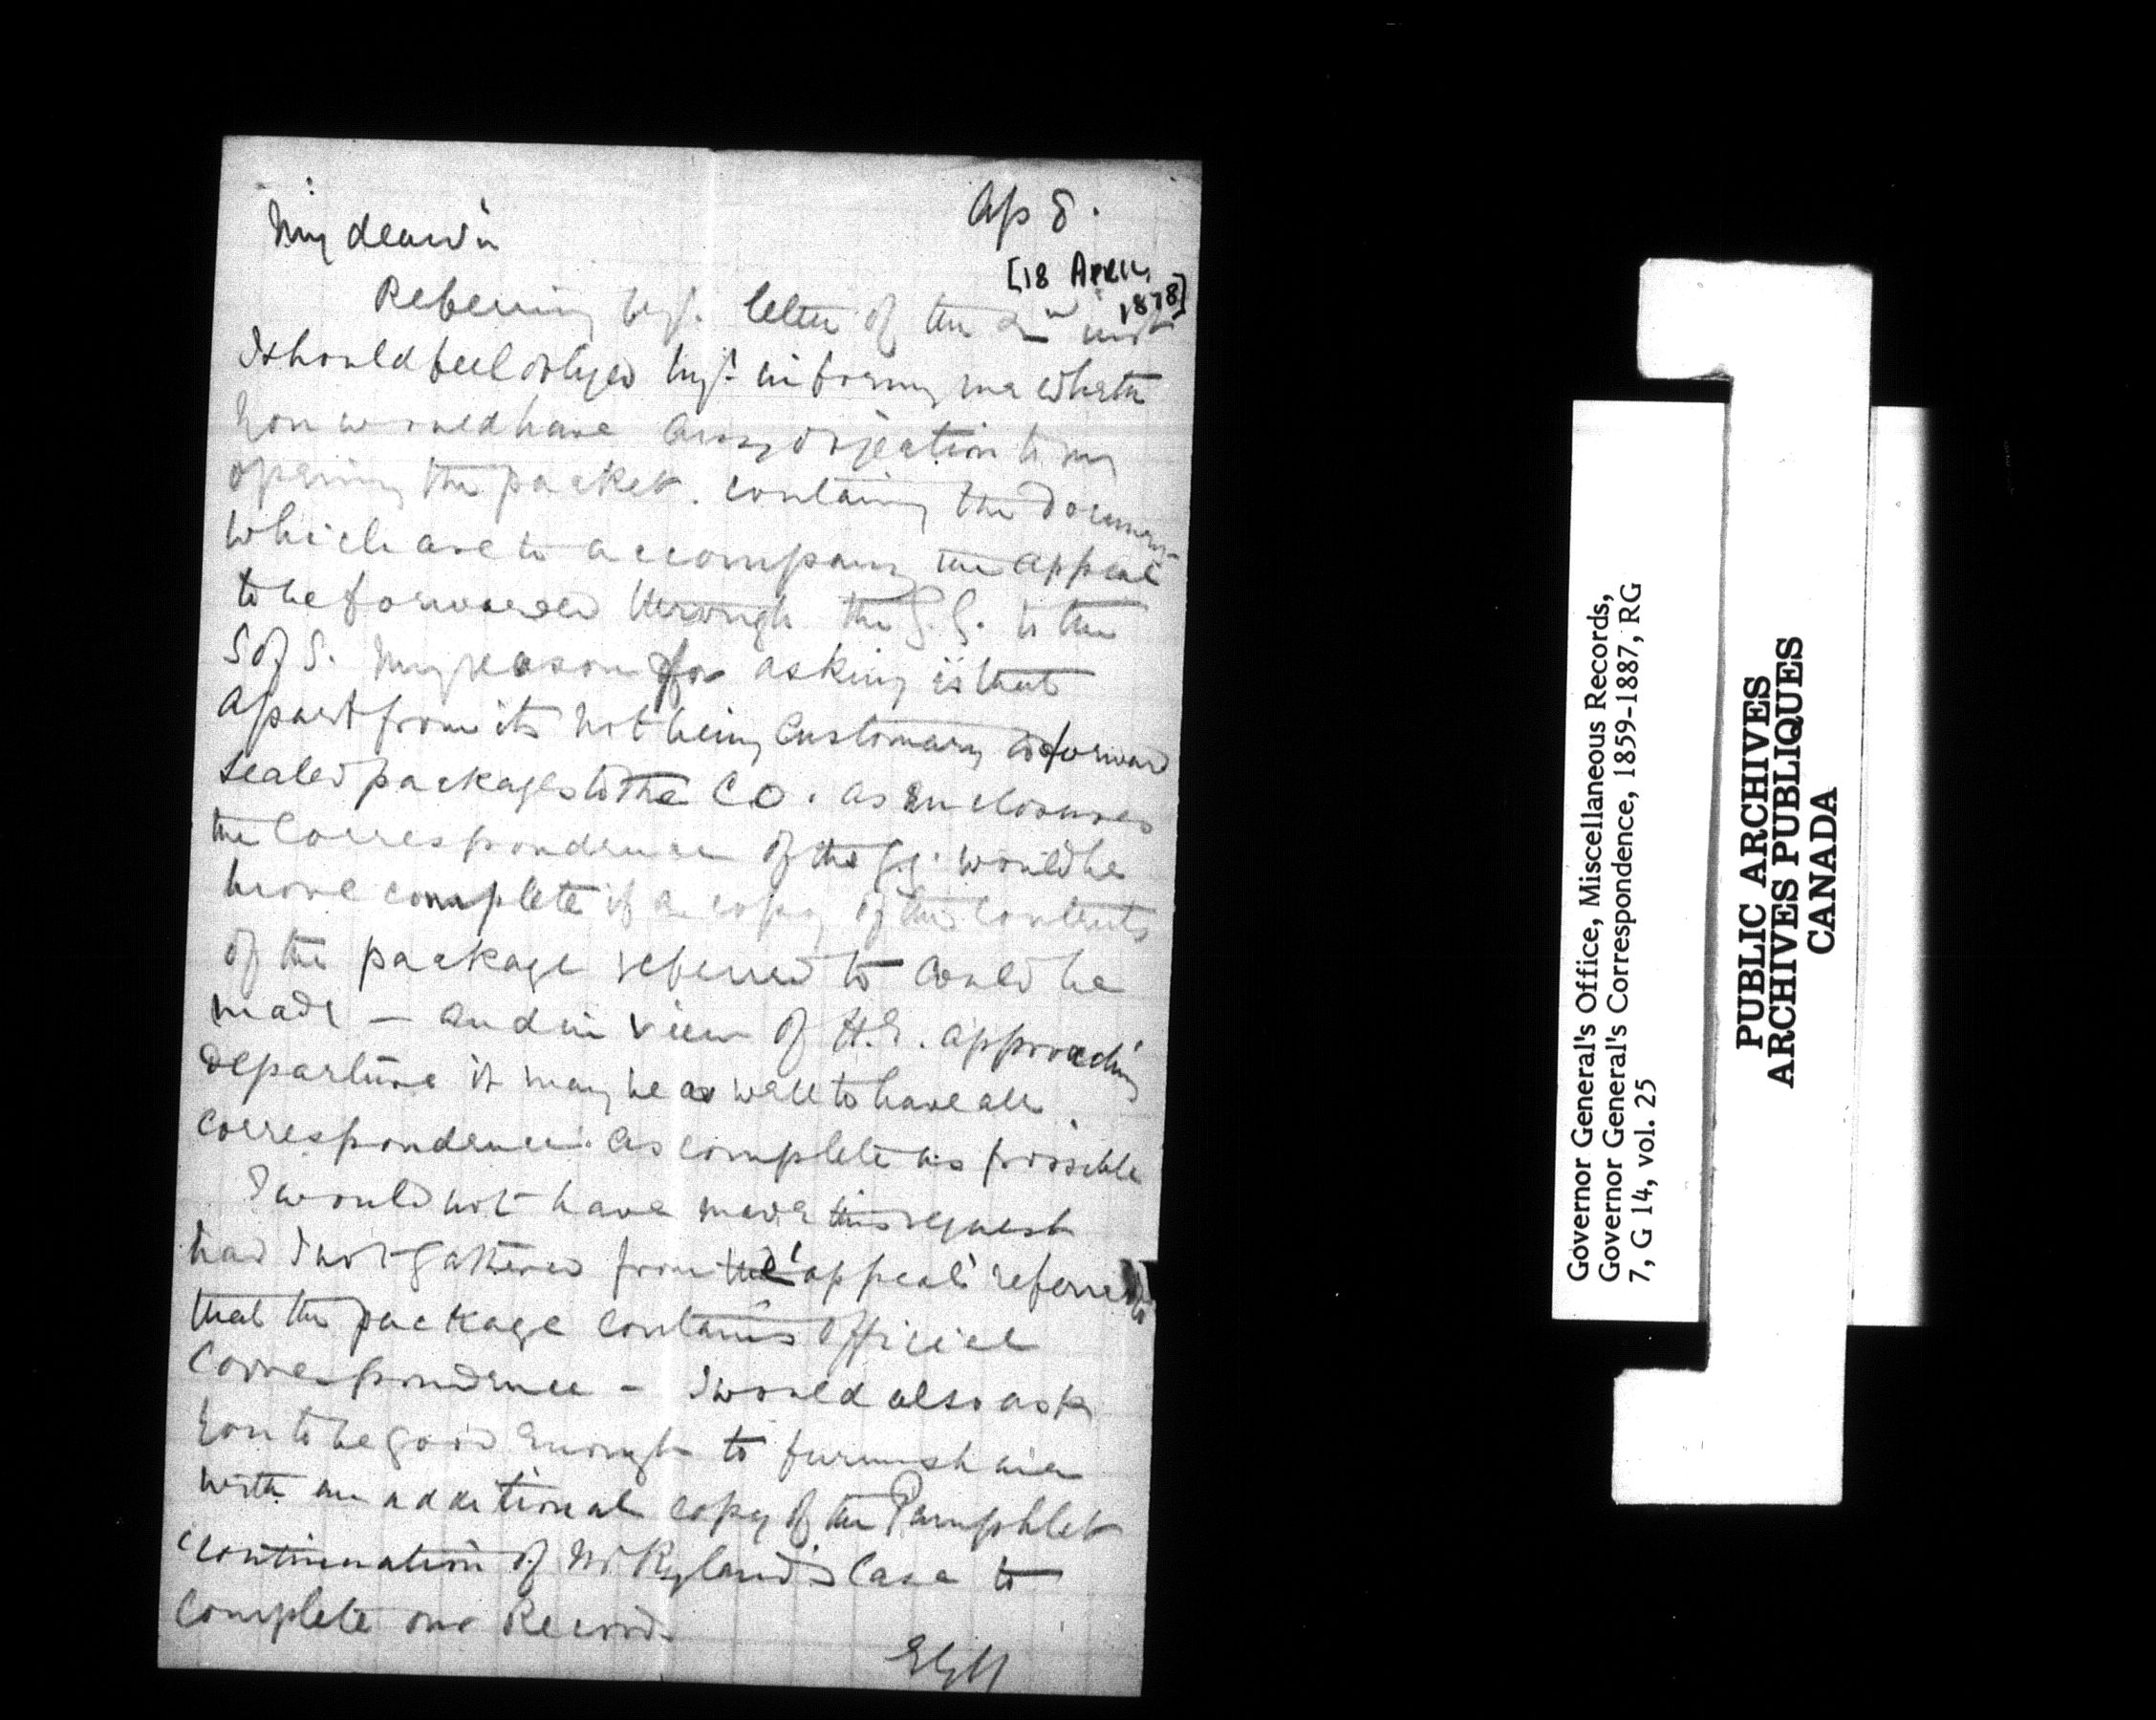 Ap 8.
My dear Sir
[18 April,
1878]
Referring to yr. letter of the 2nd inst
I should feel obliged by yr. informing me whethr
you would have any objection to my
opening the packet. containing the Documents
which are to accompany the appeal
to be forwarded through the G.G. to the
S of S. My reason for asking is that
apart from its not being Customary to forward
sealed packages to the C O. as Enclosures
the Correspondence of the G.G. would be
more complete if a copy of the contents
of the package referred to could be
made — and in view of H.E. approaching
departure it may be as well to have all
correspondence as complete as possible
I would not have made this request
had I not gathered from the 'appeal' referred to
that the package contains official
Correspondence - I would also ask
you to be good enough to furnish me
with an additional copy of the Pamphlet
continuation of Mr Ryland's Case to
complete our Record.
Governor General's Office, Miscellaneous Records,
Governor General's Correspondence, 1859-1887, RG
7, G 14, vol. 25
PUBLIC ARCHIVES
ARCHIVES PUBLIQUES
CANADA